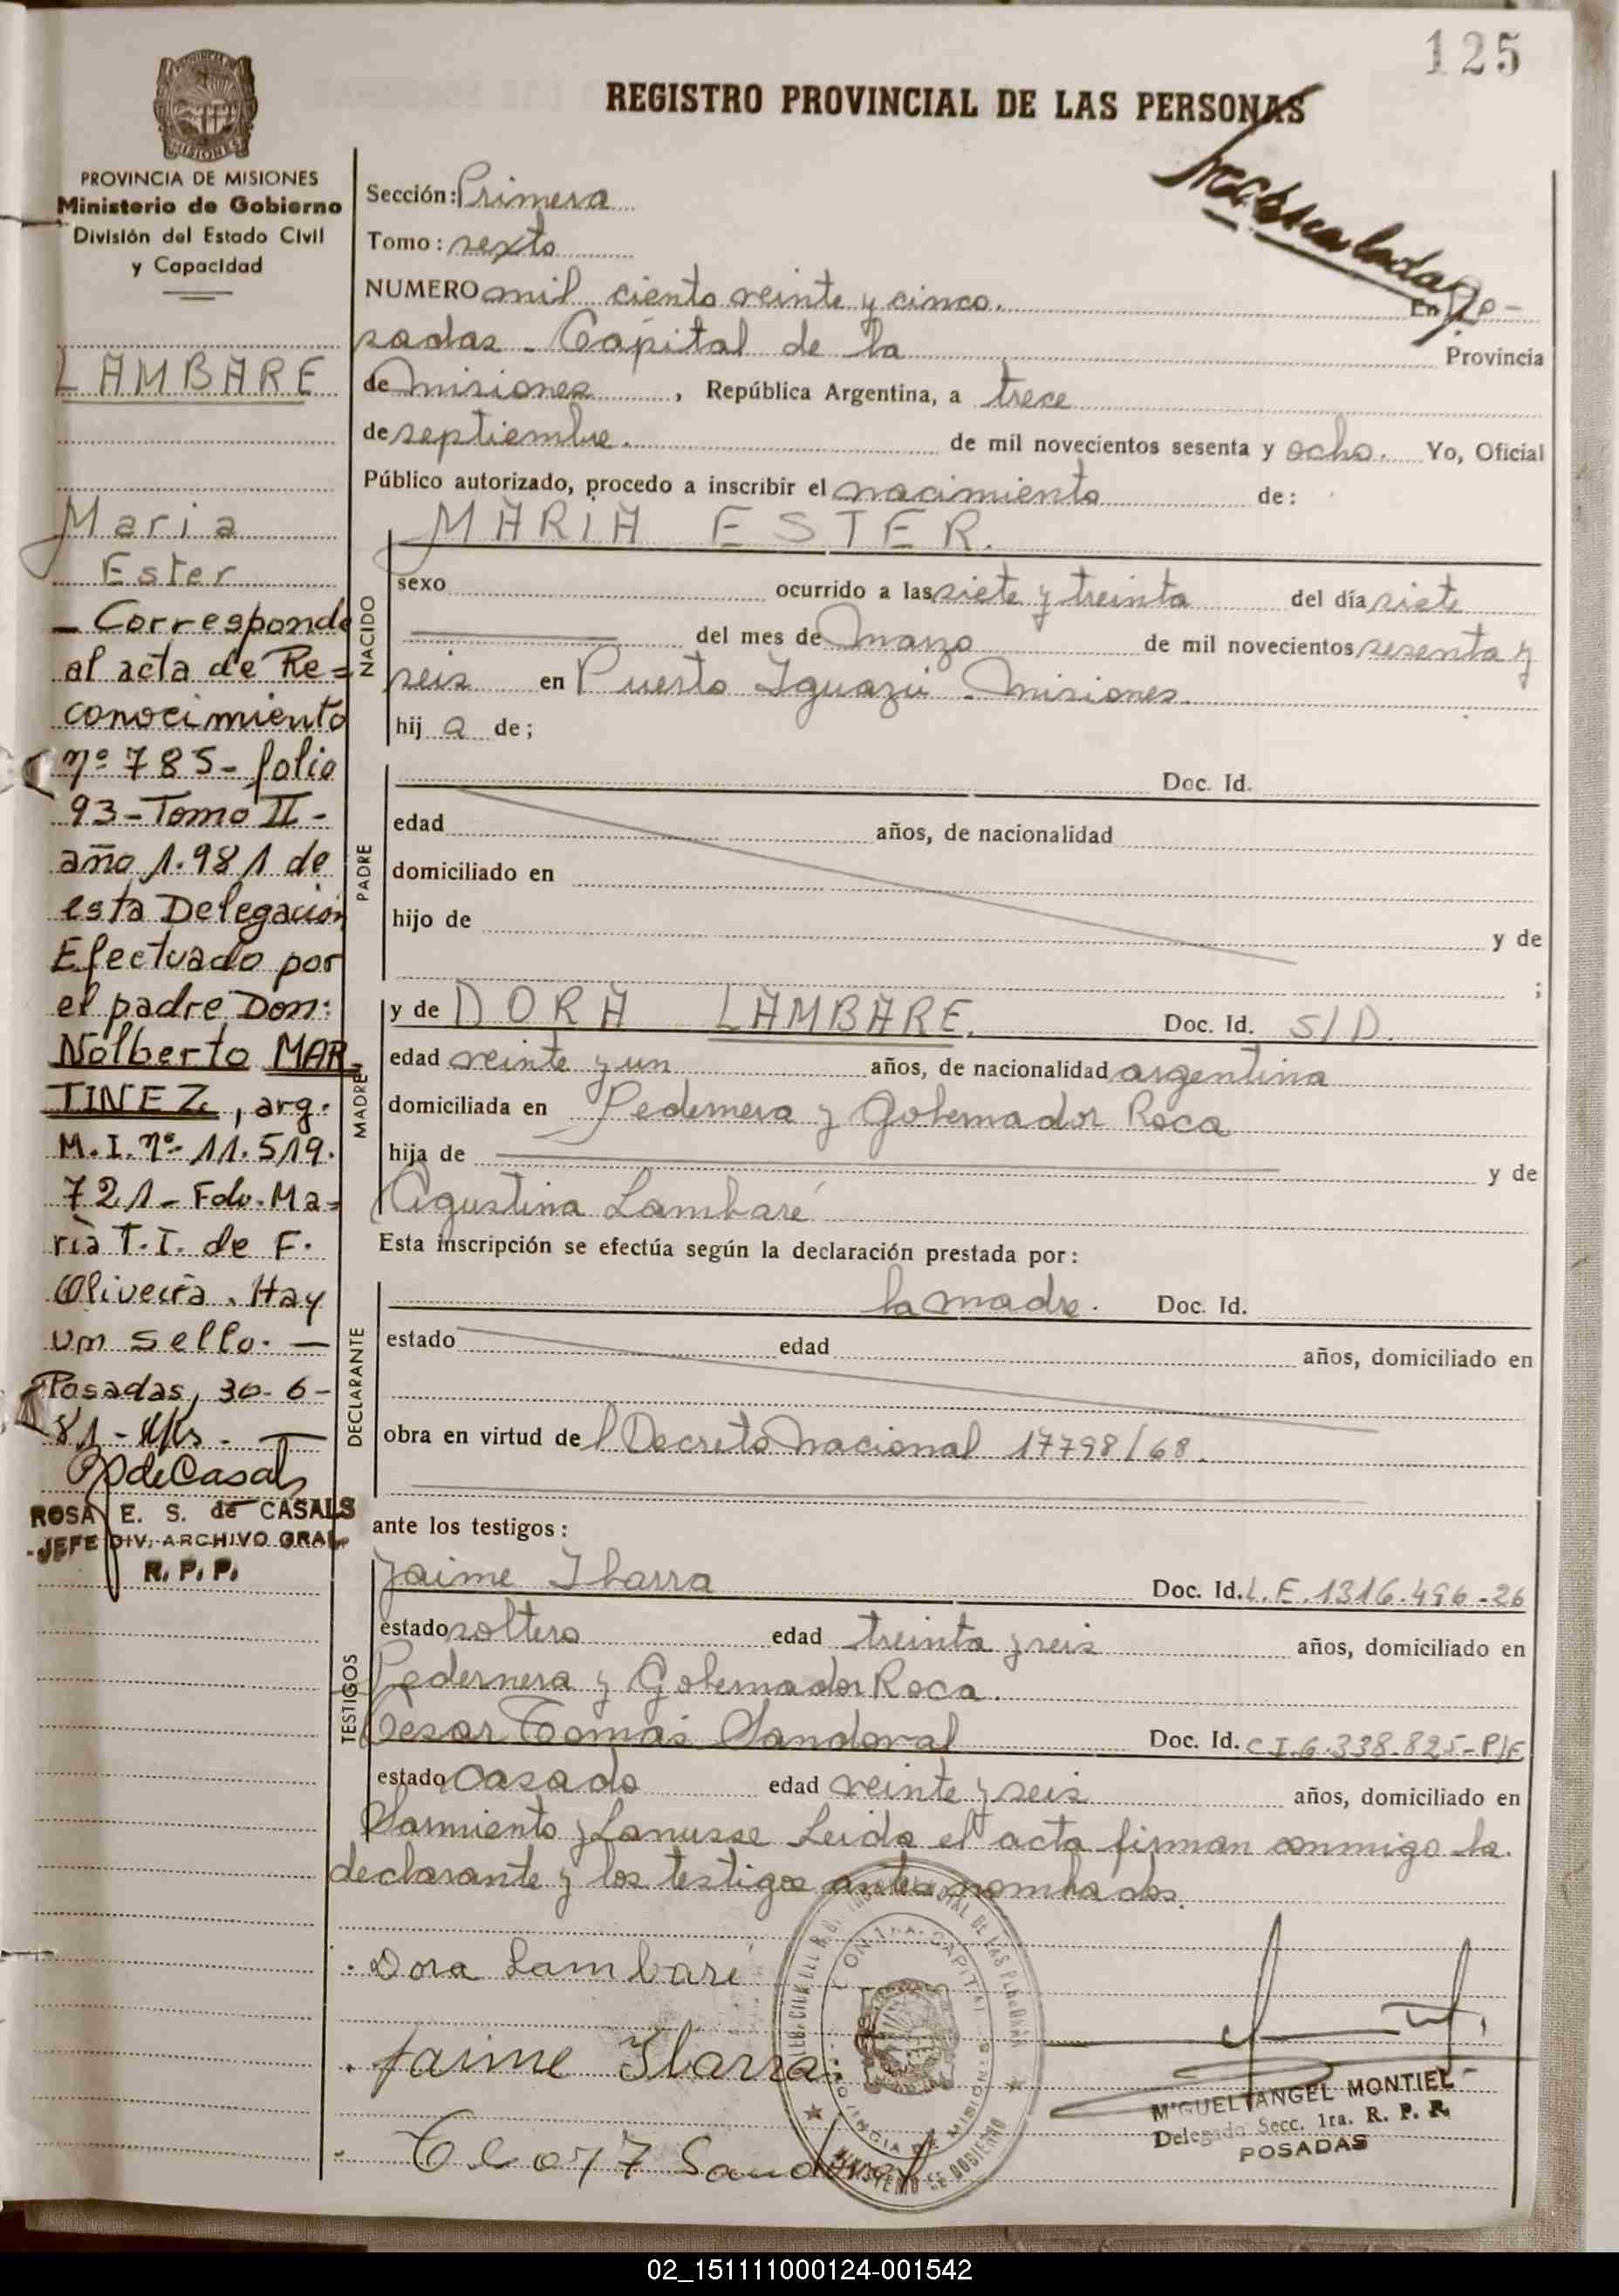 125
REGISTRO PROVINCIAL DE LAS PERSONAS
MISIONES
PROVINCIA DE MISIONES
Ministerio de Gobierno
División del Estado Civil
y Capacidad
LAMBARE
Maria
Ester
- Corresponde
al acta de Re=
conocimiento
nº 785 - folio
93 - Tomo II -
año 1.981 de
esta Delegación
Efectuado por
el padre Don:
Nolberto MAR=
TINEZ, arg.
M.I. nº 11.519.
721 - Fdo. Ma=
ria T. I. de F.
Oliveira. Hay
un sello. -
Posadas, 30-6-
81 -
ROSA E. S. de CASALS
JEFE DIV. ARCHIVO GRAL.
R. P. P.
Sección: Primera
Tomo: sexto
NUMERO mil ciento veinte y cinco. En Po-
sadas - Capital de la Provincia
de Misiones, República Argentina, a trece
de septiembre. de mil novecientos sesenta y ocho. Yo, Oficial
Público autorizado, procedo a inscribir el nacimiento de:
NACIDO
MARIA ESTER.
sexo ocurrido a las siete y treinta del día siete
del mes de marzo de mil novecientos sesenta y
seis en Puerto Iguazú - Misiones.
hij a de;
PADRE
Doc. Id.
edad años, de nacionalidad
domiciliado en
hijo de y de
;
MADRE
y de DORA LAMBARE. Doc. Id. S/D.
edad veinte y un años, de nacionalidad argentina
domiciliada en Pedernera y Gobernador Roca
hija de y de
Agustina Lambaré
Esta inscripción se efectúa según la declaración prestada por:
DECLARANTE
la madre. Doc. Id.
estado edad años, domiciliado en
obra en virtud de l Decreto Nacional 17798/68.
ante los testigos:
TESTIGOS
Jaime Ibarra Doc. Id. L.E. 1316.496-26
estado soltero edad treinta y seis años, domiciliado en
Pedernera y Gobernador Roca.
Cesar Tomas Sandoval Doc. Id. C.I. 6.338.825-P/F
estado casado edad veinte y seis años, domiciliado en
Sarmiento y Lanusse Leida el acta firman conmigo la
declarante y los testigos antes nombrados.
Dora Lambaré
Jaime Ibarra
Sandoval
MIGUEL ANGEL MONTIEL
Delegado Secc. 1ra. R. P. P.
POSADAS
02_151111000124-001542